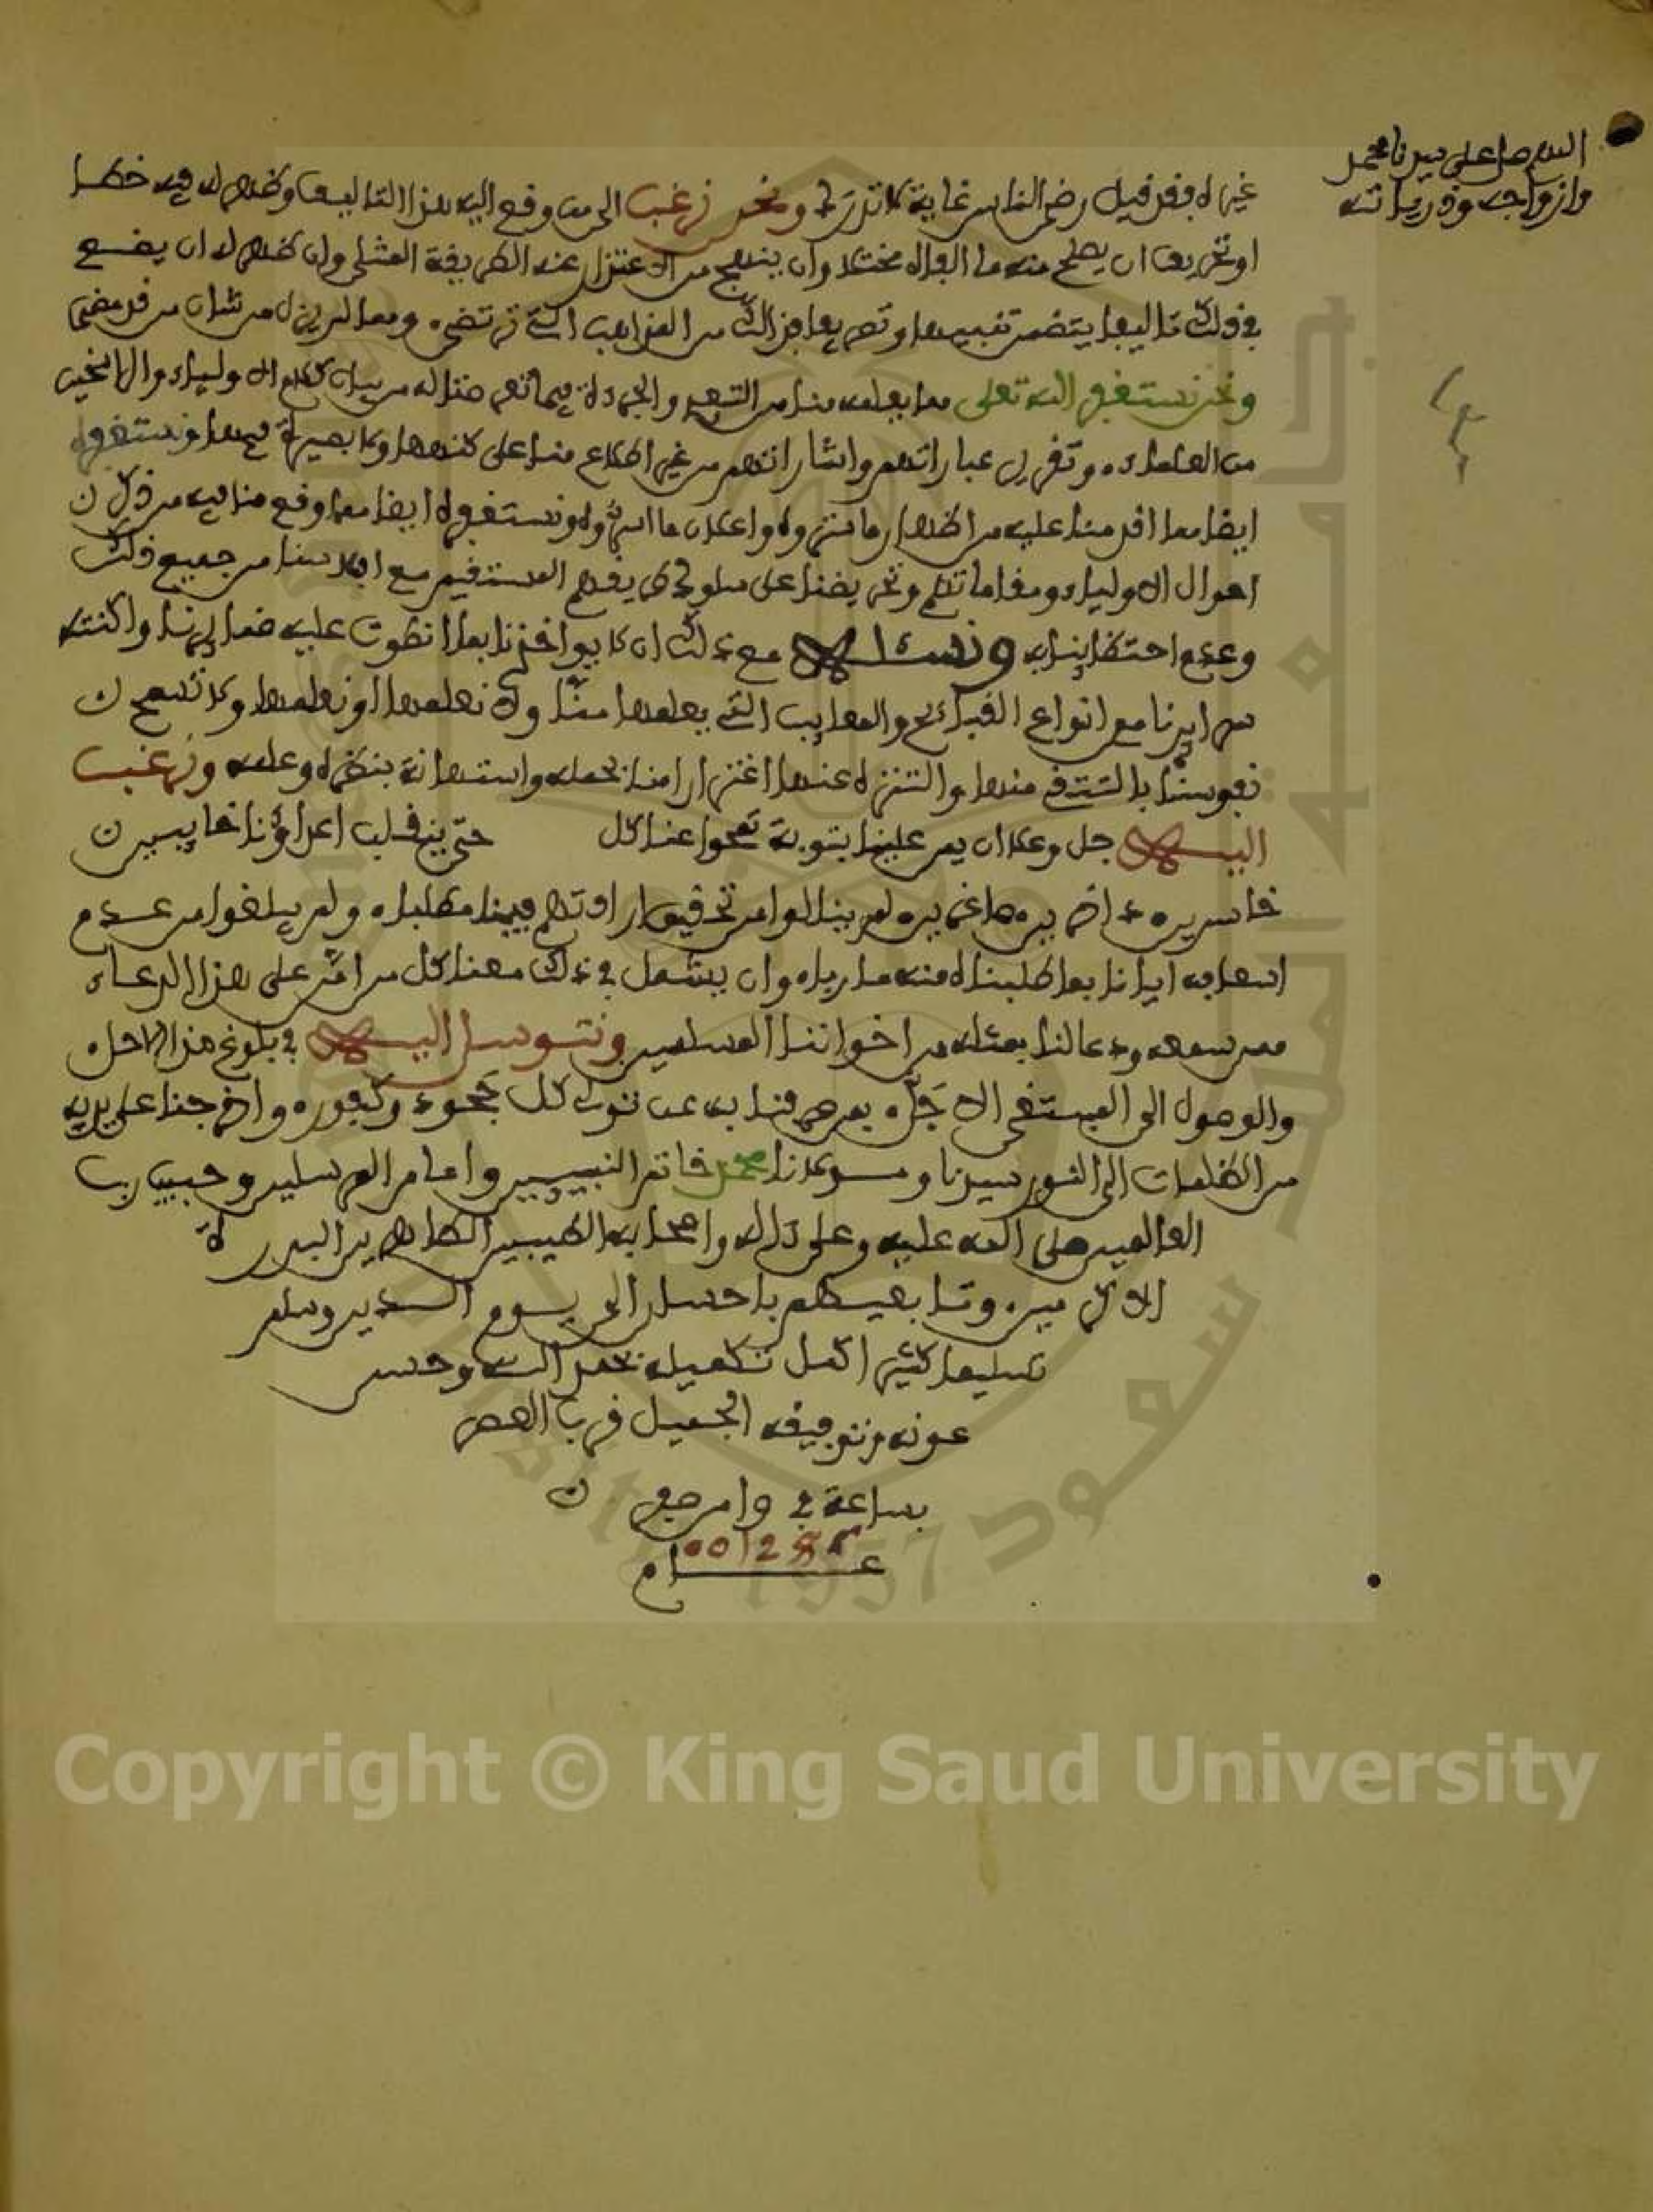 اللهم صل على سيدنا محمد
وازواجه وذرياته
غيره فقد قيل رضى الناس غاية لا تدرك ونحن نرغب الى من وقع اليه هذا التاليف وظهر له فيه خطا
او تحريف ان يصلح منه ما الفاه مختلا وان ينهج من الاعتذار عنه الطريقة المثلى وان ظهر له ان يضع
في ذلك تاليفا يتضمن تتميما وتعريفا فذالك من المذاهب التي ترتضى وما لم يزل من شان من قد مضى
ونحن نستغفر الله تعلى مما يعلمه منا من والجرءة فيما تعرضنا له من بيان كلام الاولياء والراسخين
من العلماء وتقرير عباراتهم واشاراتهم من غير اطلاع منا على كنهها ولا بصيرة فيها ونستغفره
ايضا مما اقدمنا عليه من اظهار ما ستروه واعلان ما اسروه ونستغفره ايضا مما وقع منا فيه من ذكر
احوال الاولياء ومقاماتهم وتحريضنا على سلوك طريقهم المستقيم مع افلاسنا من جميع ذلك
وعدم احتظائنا به ونسئله مع ذلك ان لا يواخذنا بما انطوت عليه ضمائرنا واكنته
سرايرنا من انواع القبائح والمعايب التي يعلمها منا ولا نعلمها او نعلمها ولا تسمح
نفوسنا بالتنقي منها والتنزه عنها اغترارا منا بحلمه واستهانة بنظره وعلمه ونرغب
اليه جل وعلا ان يمن علينا بتوبة تمحوا عنا كل حتى ينقلب اعداؤنا خايبين
خاسرين داخرين صاغرين لم ينالوا من تحقيق ارادتهم فينا مطلبا ولم يبلغوا من عدم
اسعافه ايانا بما طلبناه منه ماربا وان يشمل في ذلك معنا كل من امن على هذا الدعاء
ممن سمعه ودعا لنا بمثله من اخواننا المسلمين ونتوسل اليه في بلوغ هذا الامل
والوصول الى المبتغى الاجل بمن صرفنا به عن تولى كل جحود وكفور واخرجنا على يديه
من الظلمات الى النور سيدنا ومولانا محمد خاتم النبيين وامام المرسلين وحبيب رب
العالمين صلى الله عليه وعلى ءاله واصحابه الطيبين الطاهرين البررة
الاكرمين وتابعيهم باحسان الى يوم الدين وسلم
تسليما كثيرا كمل تكميله بحمد الله وحسن
عونه وتوفيقه الجميل قرب العصر
بساعة في
عام
Copyright © King Saud University